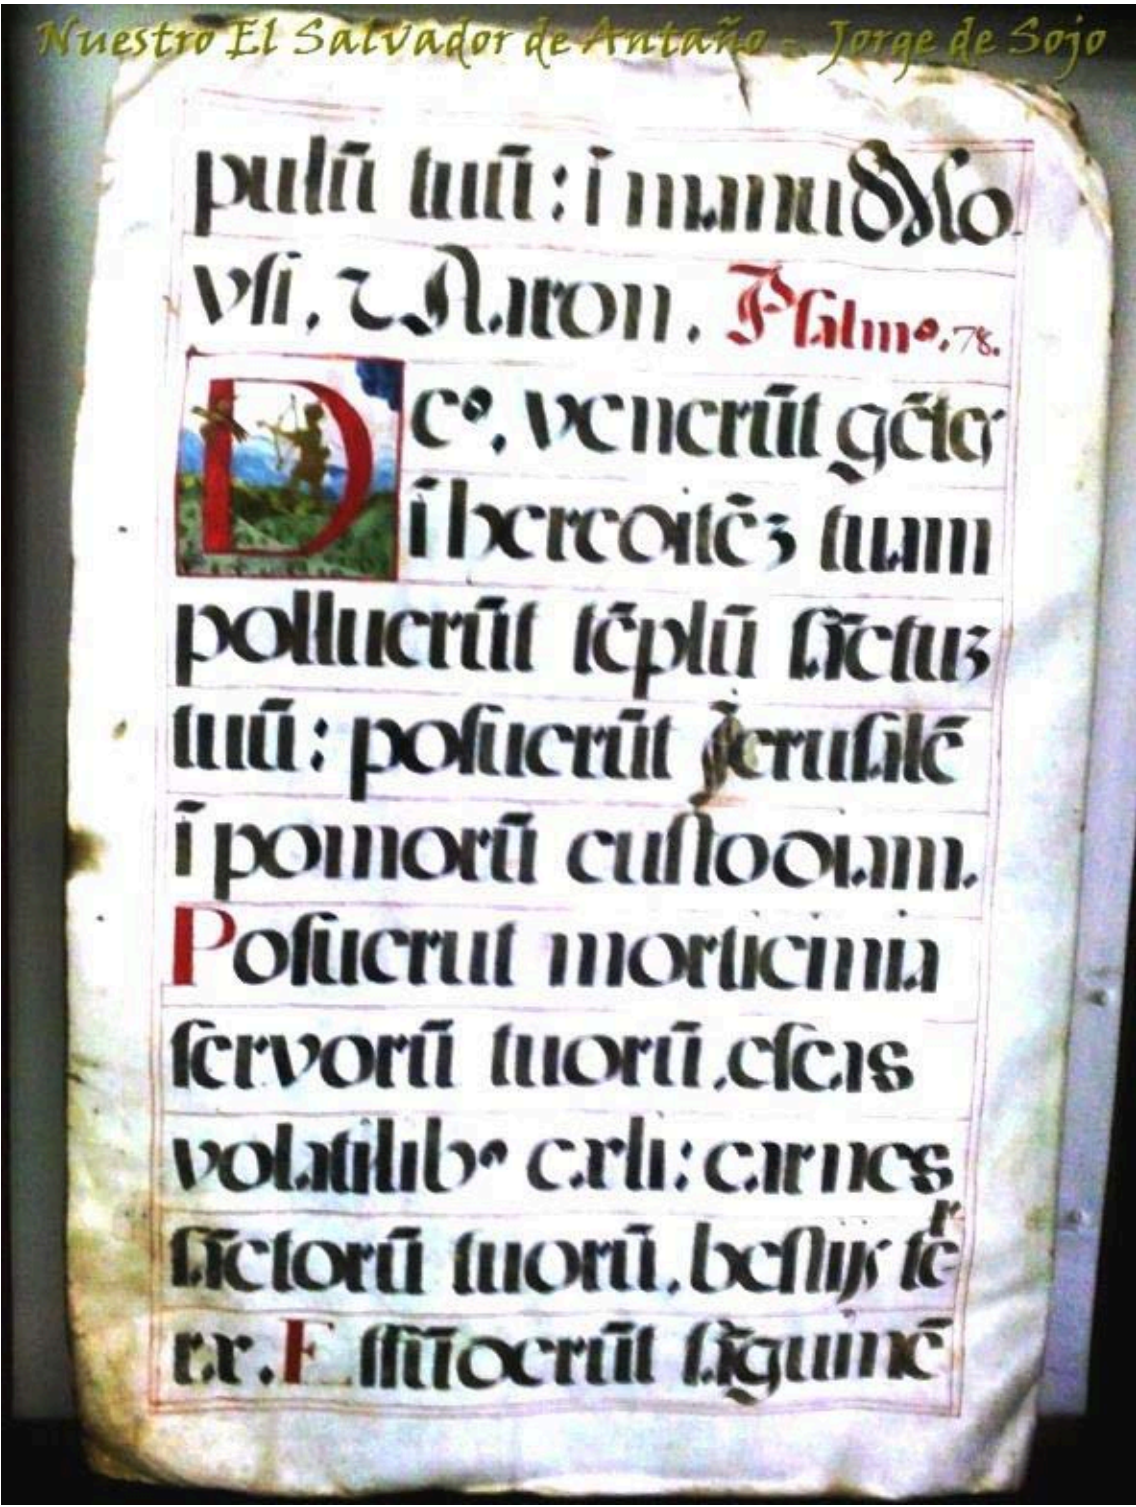 Nuestro El Salvador de Antaño - Jorge de Sojo
pulũ tuũ: ĩ manu d Mo
ysi, ⁊ Aaron. Psalmo. 78.
Deo, venerũt gẽtes
ĩ hereditẽʒ tuam
polluerũt tẽplũ sãctuʒ
tuũ: posuerũt Jerusalẽ
ĩ pomorũ custodiam.
Posuerut morticinia
servorũ tuorũ, escas
volatilibꝰ cæli: carnes
sãctorũ tuorũ, bestijs te
rræ. Effũderũt sãguinẽ